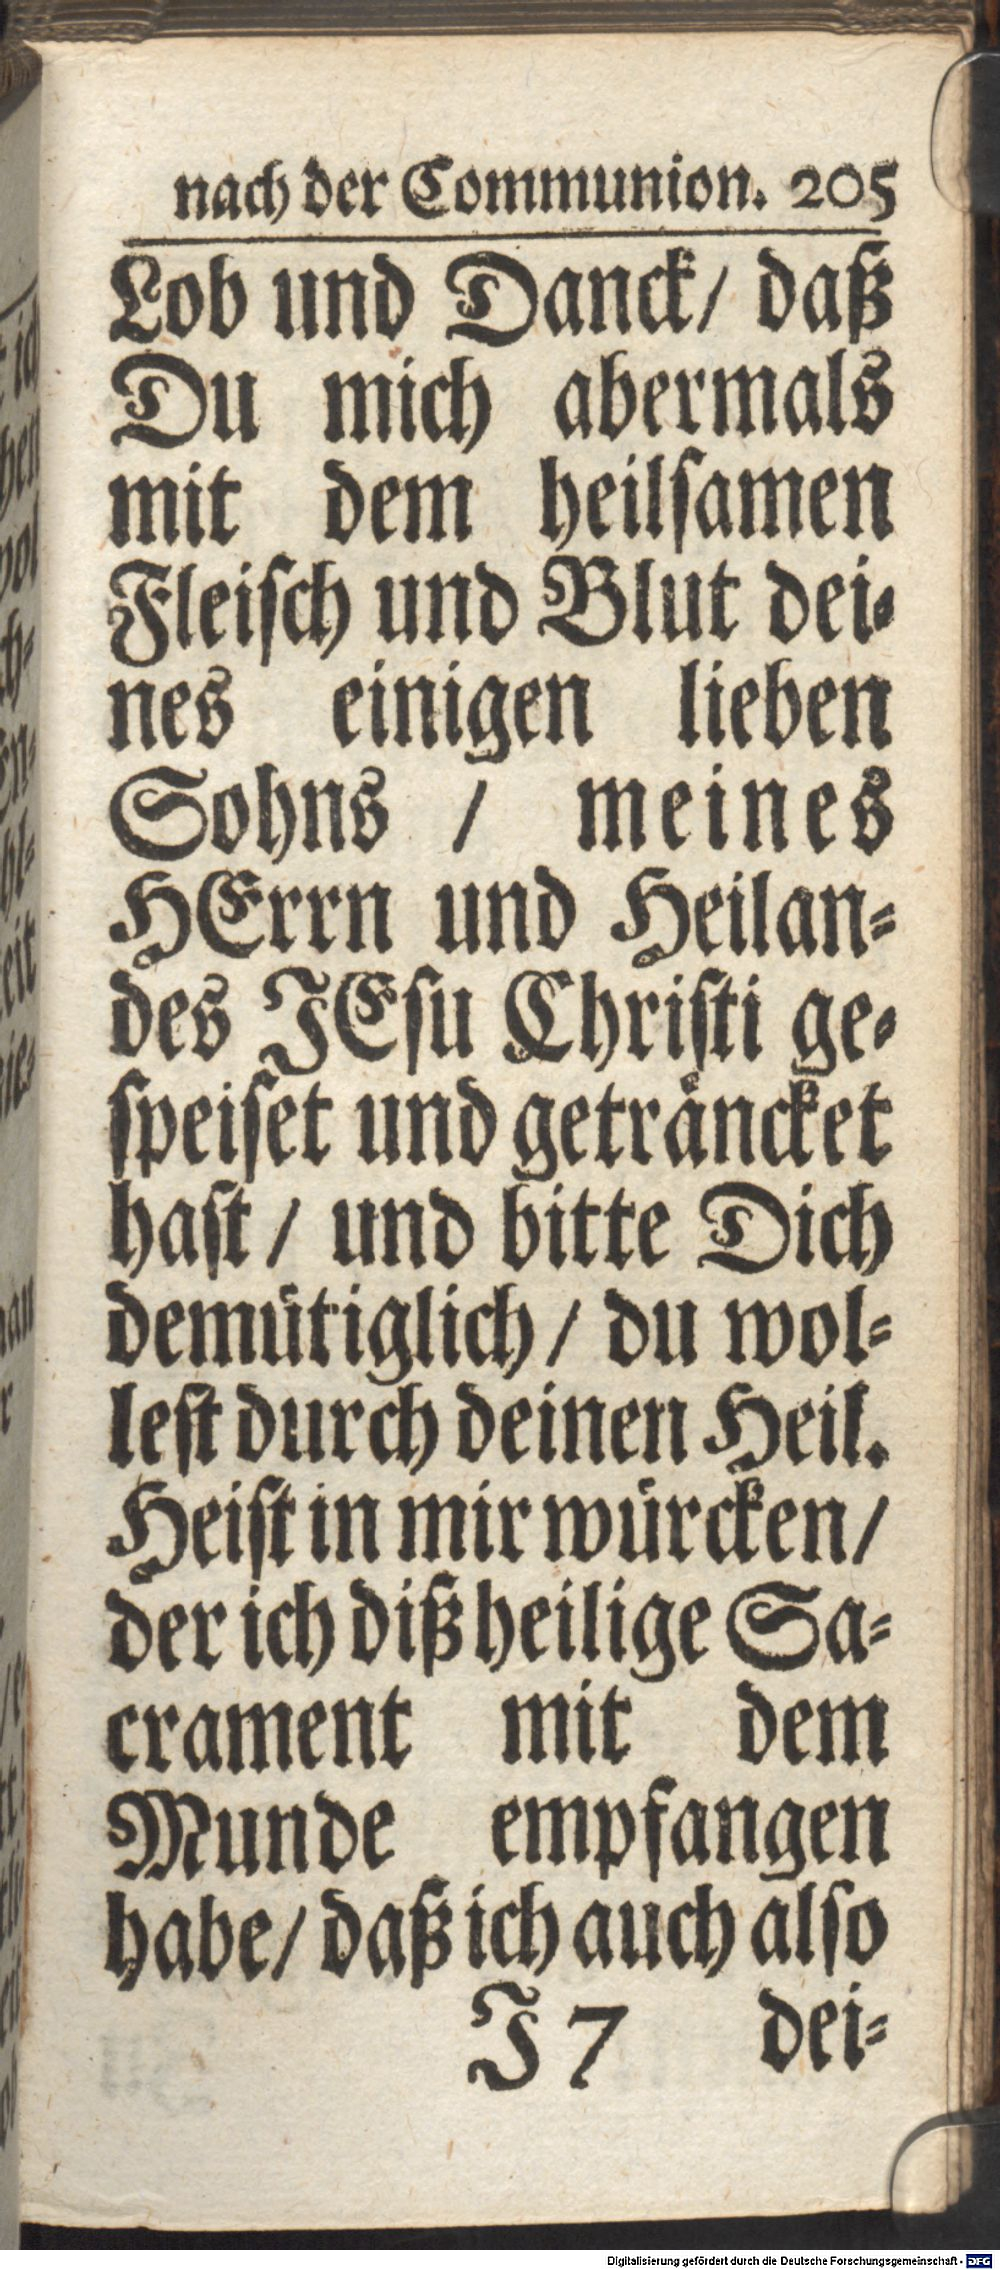 nach der Communion. 205
Lob und Danck/ daß
Du mich abermals
mit dem heilsamen
Fleisch und Blut dei-
nes einigen lieben
Sohns / meines
HErrn und Heilan-
des JEsu Christi ge-
speiset und geträncket
hast / und bitte Dich
demütiglich / du wol-
lest durch deinen Heil.
Heist in mir würcken/
der ich diß heilige Sa-
crament mit dem
Munde empfangen
habe/ daß ich auch also
J 7 dei-
Digitalisierung gefördert durch die Deutsche Forschungsgemeinschaft - DFG